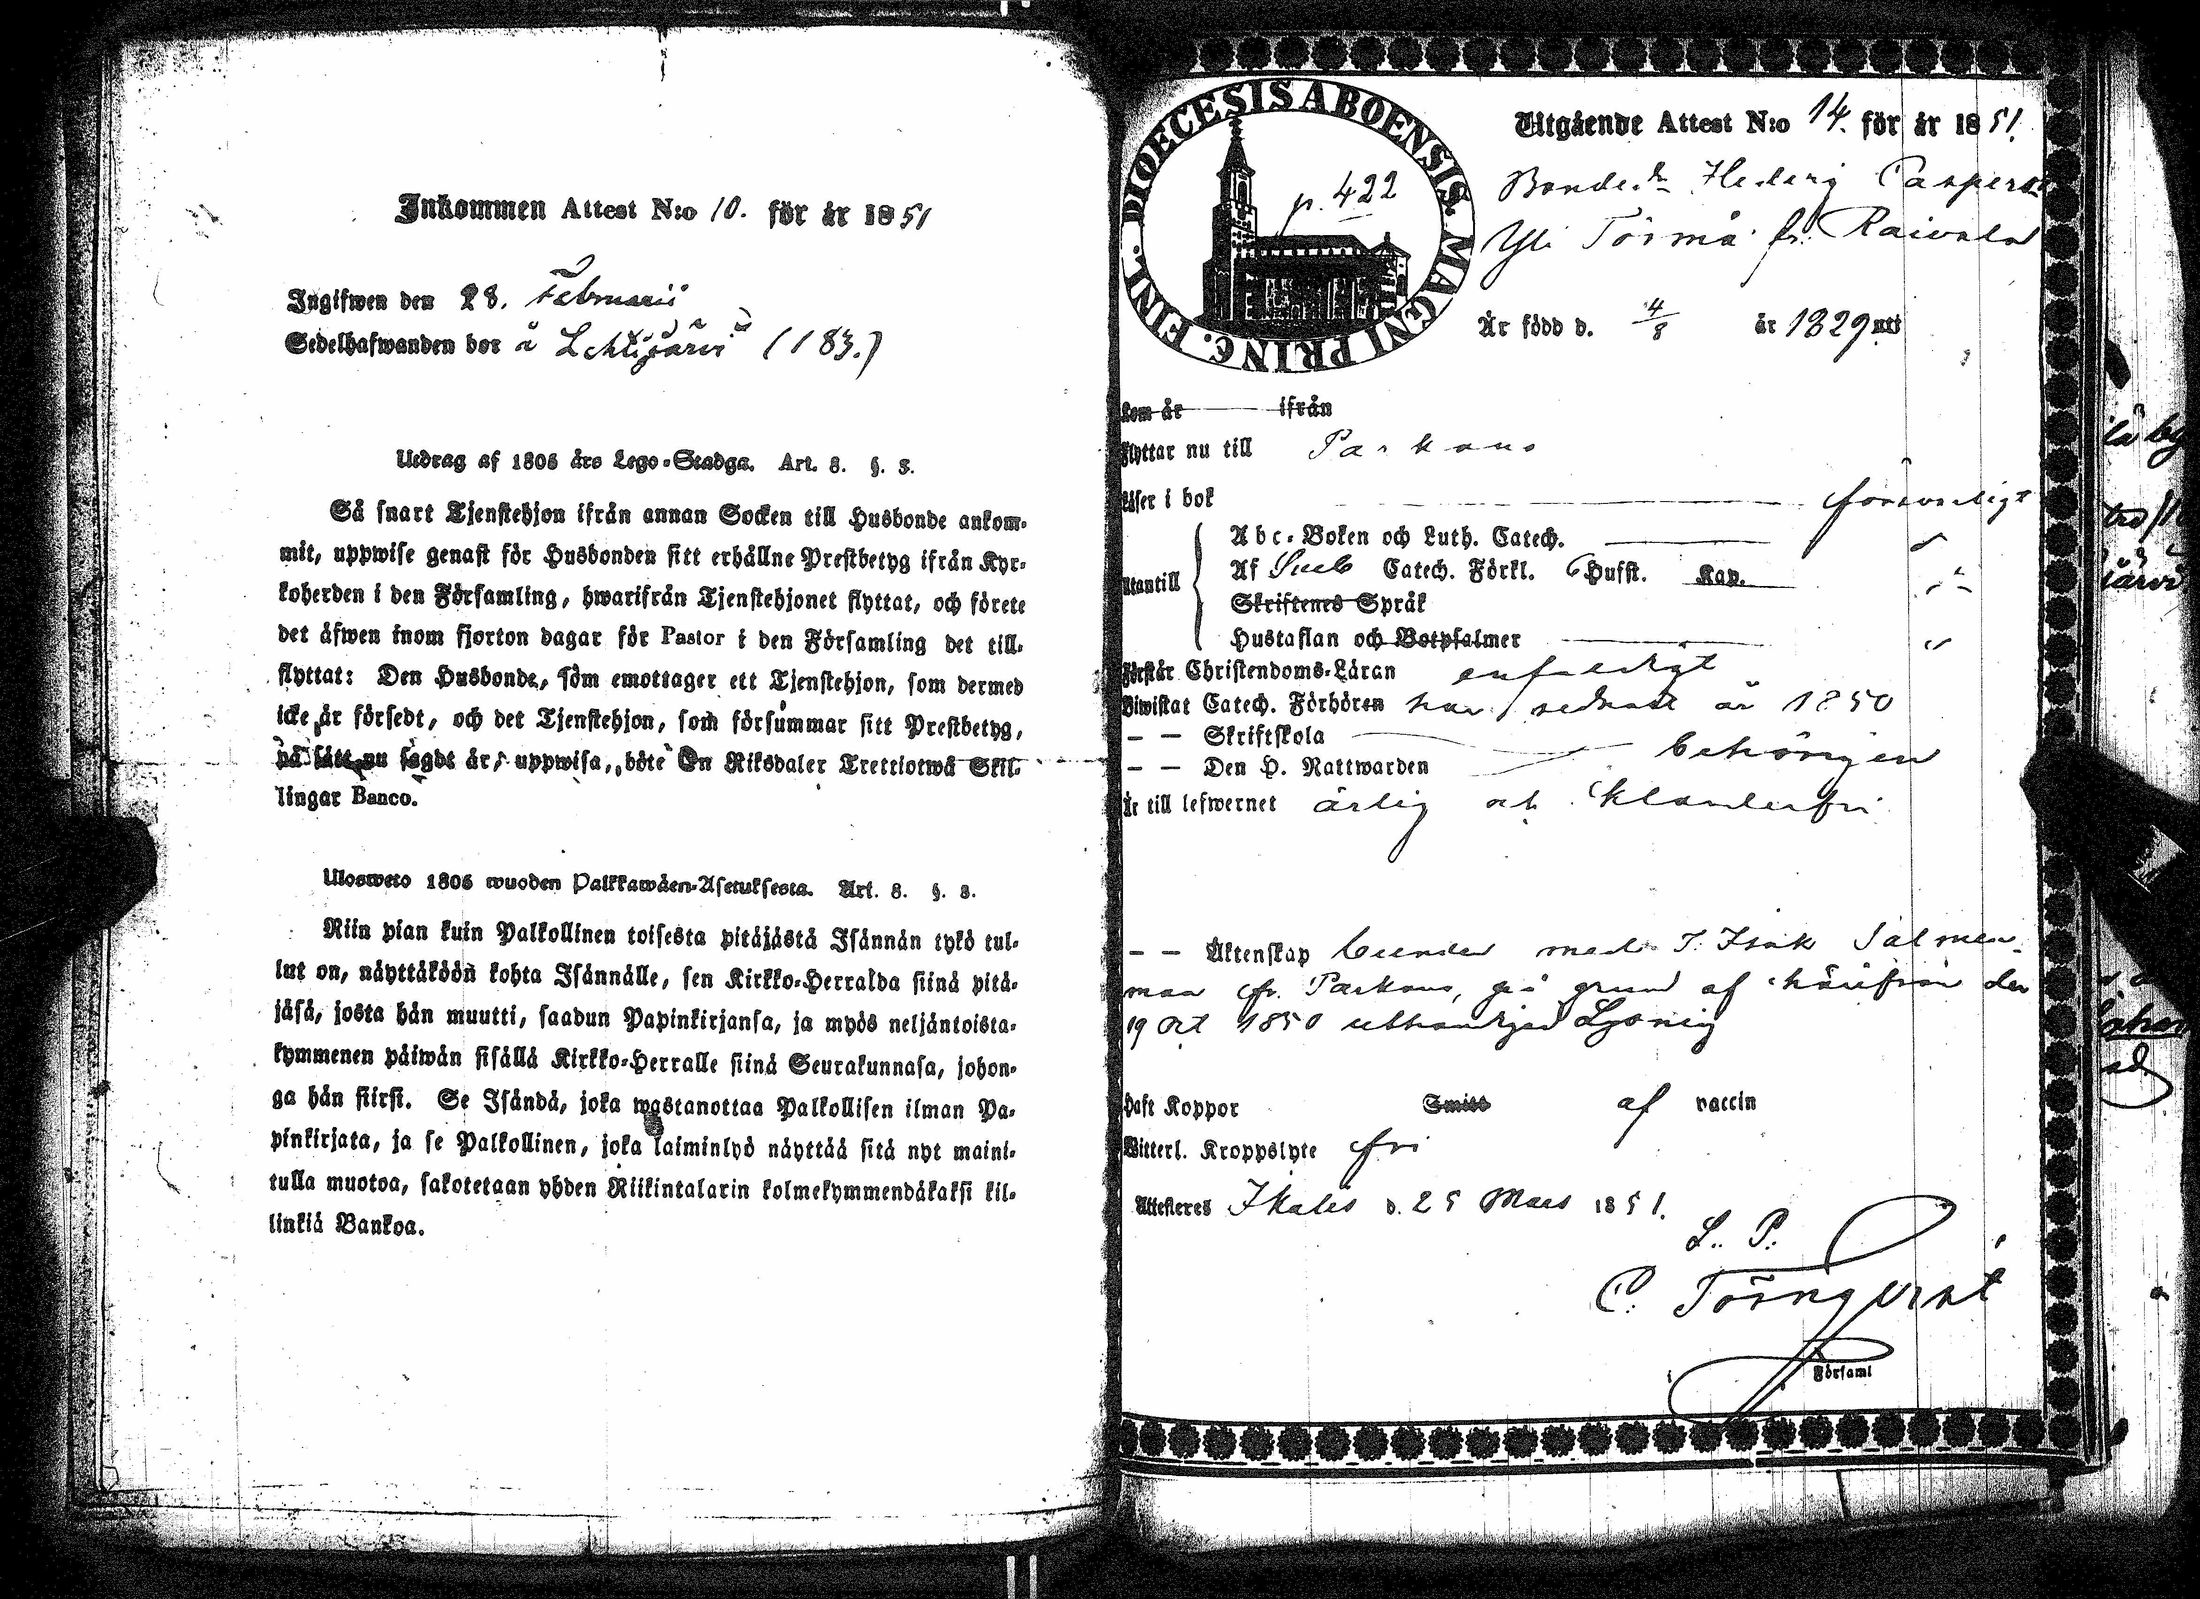 Inkommen Attest N:o 10. för år 1851
Ingifwen den 28. Februarii
Sedelhafwanden bor å Lehtijärvi (183.)
Utdrag af 1805 års Lego-Stadga. Art. 8. §. 3.
Så snart Tjenstehjon ifrån annan Socken till Husbonde ankom-
mit, uppwise genast för Husbonden sitt erhållne Prestbetyg ifrån Kyr-
koherden i den Församling, hwarifrån Tjenstehjonet flyttat, och förete
det äfwen inom fjorton dagar för Pastor i den Församling det till-
flyttat: Den Husbonde, som emottager ett Tjenstehjon, som dermed
icke är försedt, och det Tjenstehjon, som försummar sitt Prestbetyg,
på sätt nu sagdt är, uppwisa, böte En Riksdaler Trettiotwå Skil-
lingar Banco.
Ulosweto 1805 wuoden Palkkawäen-Asetuksesta. Art. 8. §. 3.
Niin pian kuin Palkollinen toisesta pitäjästä Isännän tykö tul-
lut on, näyttäköön kohta Isännälle, sen Kirkko-Herralda siinä pitä-
jäsä, josta hän muutti, saadun Papinkirjansa, ja myös neljäntoista-
kymmenen päiwän sisällä Kirkko-Herralle siinä Seurakunnasa, johon-
ga hän siirsi. Se Isändä, joka wastanottaa Palkollisen ilman Pa-
pinkirjata, ja se Palkollinen, joka laiminlyö näyttää sitä nyt maini-
tulla muotoa, sakotetaan yhden Riikintalarin kolmekymmendäkaksi kil-
linkiä Bankoa.
DIOECESIS ABOENSIS. MAGNI PRINC. FINL.
p. 422
Utgående Attest N:o 14. för år 1851.
Bonded. Hedvig Caspersd.
Yli Törmä fr. Raivala
Är född d. 4/8 år 1829 uti
kom år ifrån
flyttar nu till Parkano
läser i bok försvarligt
Utantill
Abc-Boken och Luth. Catech.
Af Sveb Catech. Förkl. 6 Hufst. Kap.
Skriftenes Språk
Hustaflan och Botpsalmer
Förstår Christendoms-Läran enfaldigt
Biwistat Catech. Förhören har sednast år 1850
— — Skriftskola
— — Den H. Nattwarden behörigen
Är till lefwernet ärlig och klanderfri
— — Äktenskap bunden med T. Isak Salmen-
maa fr. Parkano, på grund af härifrån den
19 Oct 1850 Lysnig
Haft Koppor Smitt af vaccin
Witterl. Kroppslyte fri
Attesteres Ikalis d. 25 Mars 1851.
L. P.
C. Törnqvist
i Församl